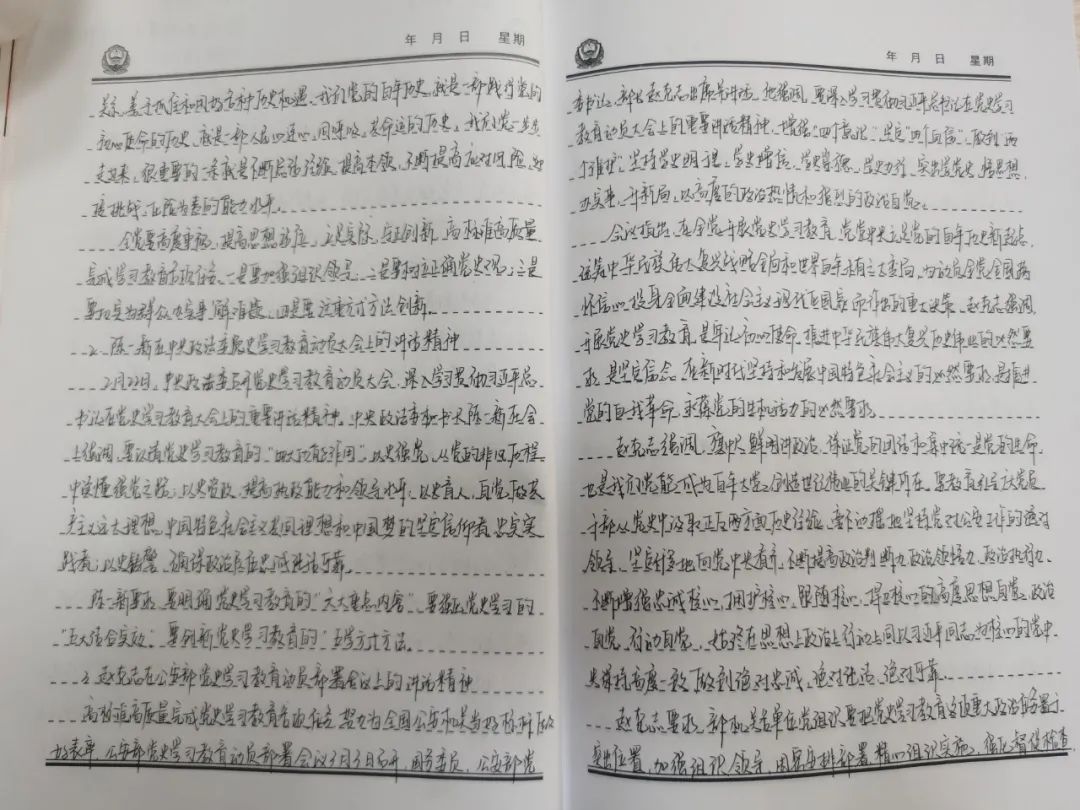 年 月 日 星期
关系,善于抓住和用好各种历史机遇。我们党的百年历史,就是一部践行党的
初心使命的历史,就是一部与人民心连心、同呼吸、共命运的历史。我们党一步步
走过来,很重要的一条就是不断总结经验、提高本领,不断提高应对风险、迎
接挑战、化险为夷的能力水平。
全党要高度重视,提高思想站位,立足实际、守正创新,高标准高质量
完成学习教育各项任务。一是要加强组织领导;二是要树立正确党史观;三是
要切实为群众办实事解难题;四是要注重方式方法创新。
2、陈一新在中央政法委党史学习教育动员大会上的讲话精神
2月22日,中央政法委召开党史学习教育动员大会,深入学习贯彻习近平总
书记在党史学习教育大会上的重要讲话精神。中央政法委秘书长陈一新在会
上强调,要认清党史学习教育的“四大功能作用”,以史强党,从党的非凡历程
中读懂强党之路;以史资政,提高执政能力和领导水平;以史育人,自觉做共
产主义远大理想、中国特色社会主义共同理想和中国梦的坚定信仰者、忠实实
践者;以史鉴警,确保政治忠诚纯洁可靠。
陈一新要求,要明确党史学习教育的“六大重点内容”,要强化党史学习的
“五大结合实效”,要创新党史学习教育的“五学方式方法。
3、赵克志在公安部党史学习教育动员部署会议上的讲话精神
高标准高质量完成党史学习教育各项任务 努力为全国公安机关当好标杆做
好表率,公安部党史学习教育动员部署会议3月3日召开,国务委员、公安部党
年 月 日 星期
委书记、部长赵克志出席并讲话。他强调,要深入学习贯彻习近平总书记在党史学习
教育动员大会上的重要讲话精神,增强“四个意识”、坚定“四个自信”、做到“两
个维护”,坚持学史明理、学史增信、学史崇德、学史力行,突出学党史、悟思想、
办实事、开新局,以高度的政治热情和强烈的政治自觉。
会议指出,在全党开展党史学习教育,党中央立足党的百年历史新起点、
统筹中华民族伟大复兴战略全局和世界百年未有之大变局,为动员全党全国满
怀信心投身全面建设社会主义现代化国家而作出的重大决策。赵克志强调,
开展党史学习教育,是牢记初心使命、推进中华民族伟大复兴历史伟业的必然要
求,是坚定信念、在新时代坚持和发展中国特色社会主义的必然要求,是推进
党的自我革命、永葆党的生机活力的必然要求。
赵克志强调,旗帜鲜明讲政治、保证党的团结和集中统一是党的生命,
也是我们党能成为百年大党、创造世纪伟业的关键所在。要教育引导广大党员
干部从党史中汲取正反两方面历史经验,要牢牢把握坚持党对公安工作的绝对
领导,坚定不移地向党中央看齐,不断提高政治判断力、政治领悟力、政治执行力,
不断增强忠诚核心、拥护核心、跟随核心、捍卫核心的高度思想自觉、政治
自觉、行动自觉,始终在思想上政治上行动上同以习近平同志为核心的党中
央保持高度一致,做到绝对忠诚、绝对纯洁、绝对可靠。
赵克志要求,部机关各单位党组织要把党史学习教育这项重大政治任务置于
突出位置,加强组织领导,周密安排部署,精心组织实施,强化督促检查,